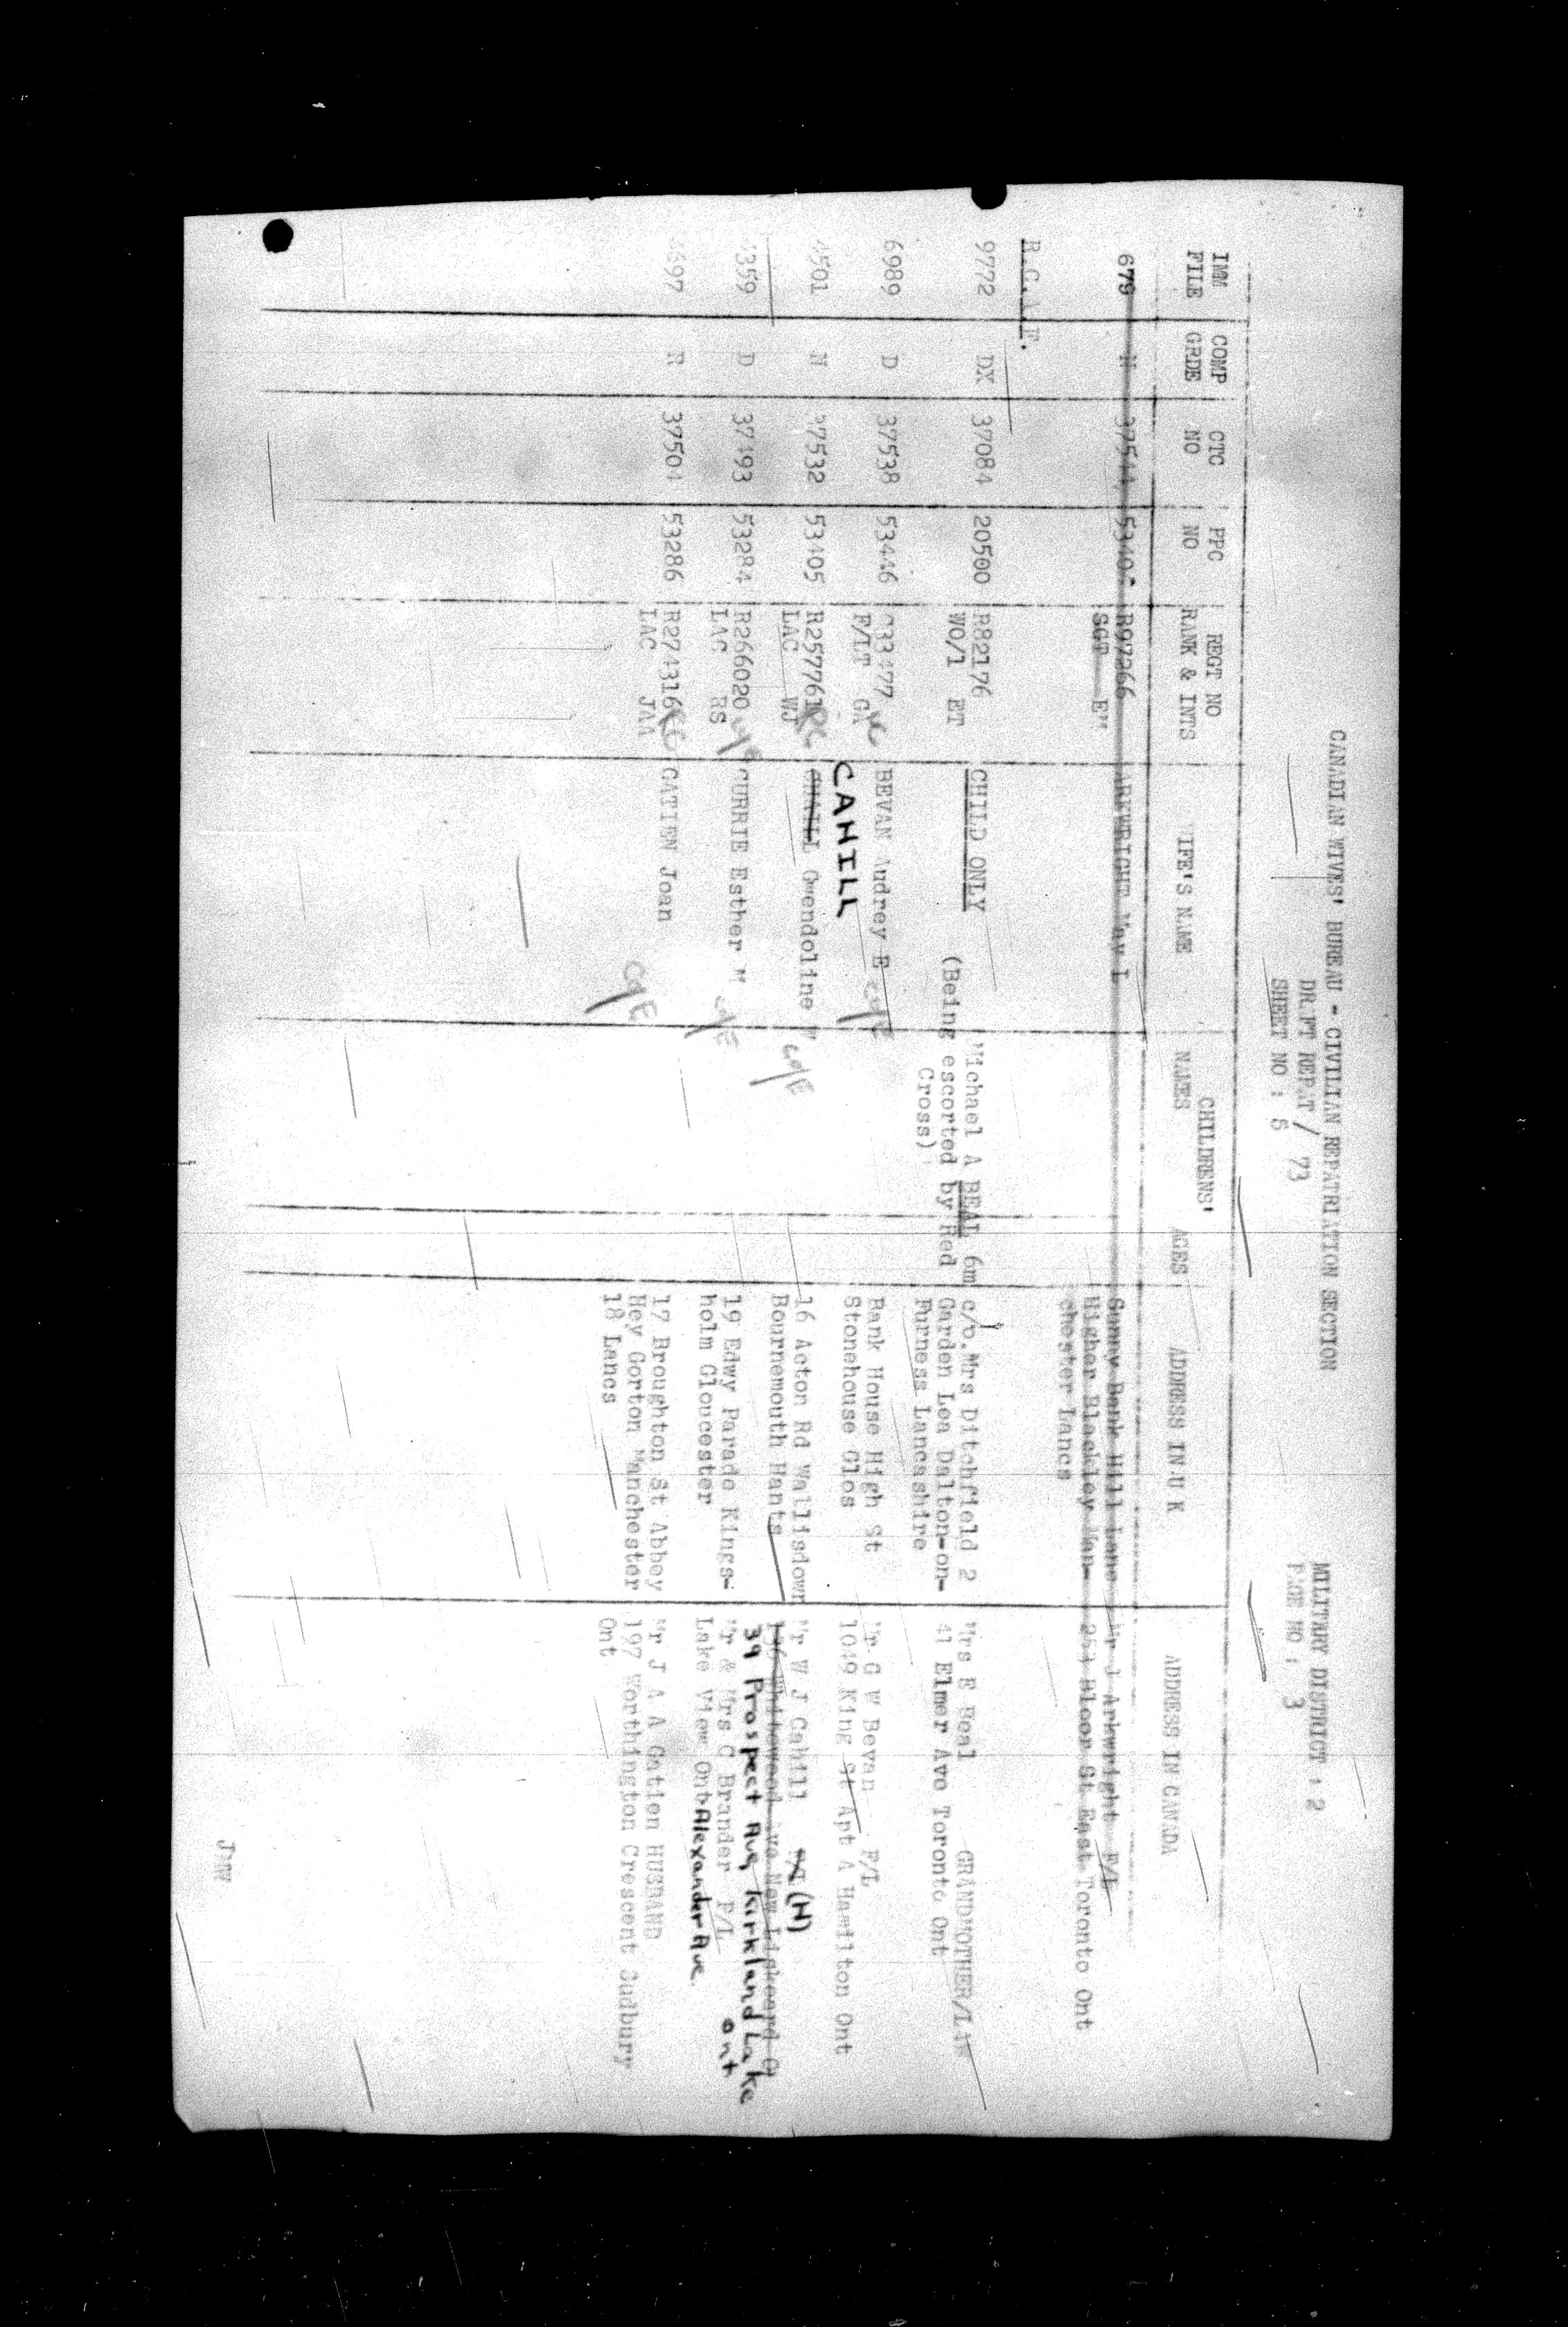 CANADIAN WIVES' BUREAU - CIVILIAN REPATRIATION SECTION
DRAFT REPAT / 73
MILITARY DISTRICT : 2
SHEET NO : 5
PAGE NO : 3
IMM FILE
COMP GRDE
CTC NO
PPC NO
REGT NO RANK & INTS
WIFE'S NAME
CHILDRENS' NAMES
AGES
ADDRESS IN U K
ADDRESS IN CANADA
679 N 37544 R97266 ARKWRIGHT May L Sunny Bank Hill Lane Mr J Arkwright F/L
SGT Higher Blackley Man- 253 Bloor St East Toronto Ont
chester Lancs
R.C.A.F.
9772 DX 37084 20500 R82176 CHILD ONLY Michael A BEAL 6m c/o.Mrs Ditchfield 2 Mrs E Beal GRANDMOTHER/LAW
WO/1 ET (Being escorted by Red Garden Lea Dalton-on- 41 Elmer Ave Toronto Ont
Cross) Furness Lancashire
6989 D 37538 53446 C33477 BEVAN Audrey E Bank House High St Mr G W Bevan F/L
F/LT GW Stonehouse Glos 1049 King St Apt A Hamilton Ont
CAHILL
4501 N 37532 53405 R257761 RC Gwendoline W 16 Acton Rd Wallisdown Mr W J Cahill (H)
LAC WJ Bournemouth Hants 136 Whitewood Ave New Liskeard O
39 Prospect Ave, Kirkland Lake Ont
359 D 37493 53284 R266020 c/e CURRIE Esther M c/E 19 Edwy Parade Kings- Mr & Mrs C Brander F/L
LAC RS holm Gloucester Lake View Ont Alexander Ave.
397 37504 53286 R274316 GATIEN Joan 17 Broughton St Abbey Mr J A A Gatien HUSBAND
LAC JAA Hey Gorton Manchester 197 Worthington Crescent Sudbury
18 Lancs Ont